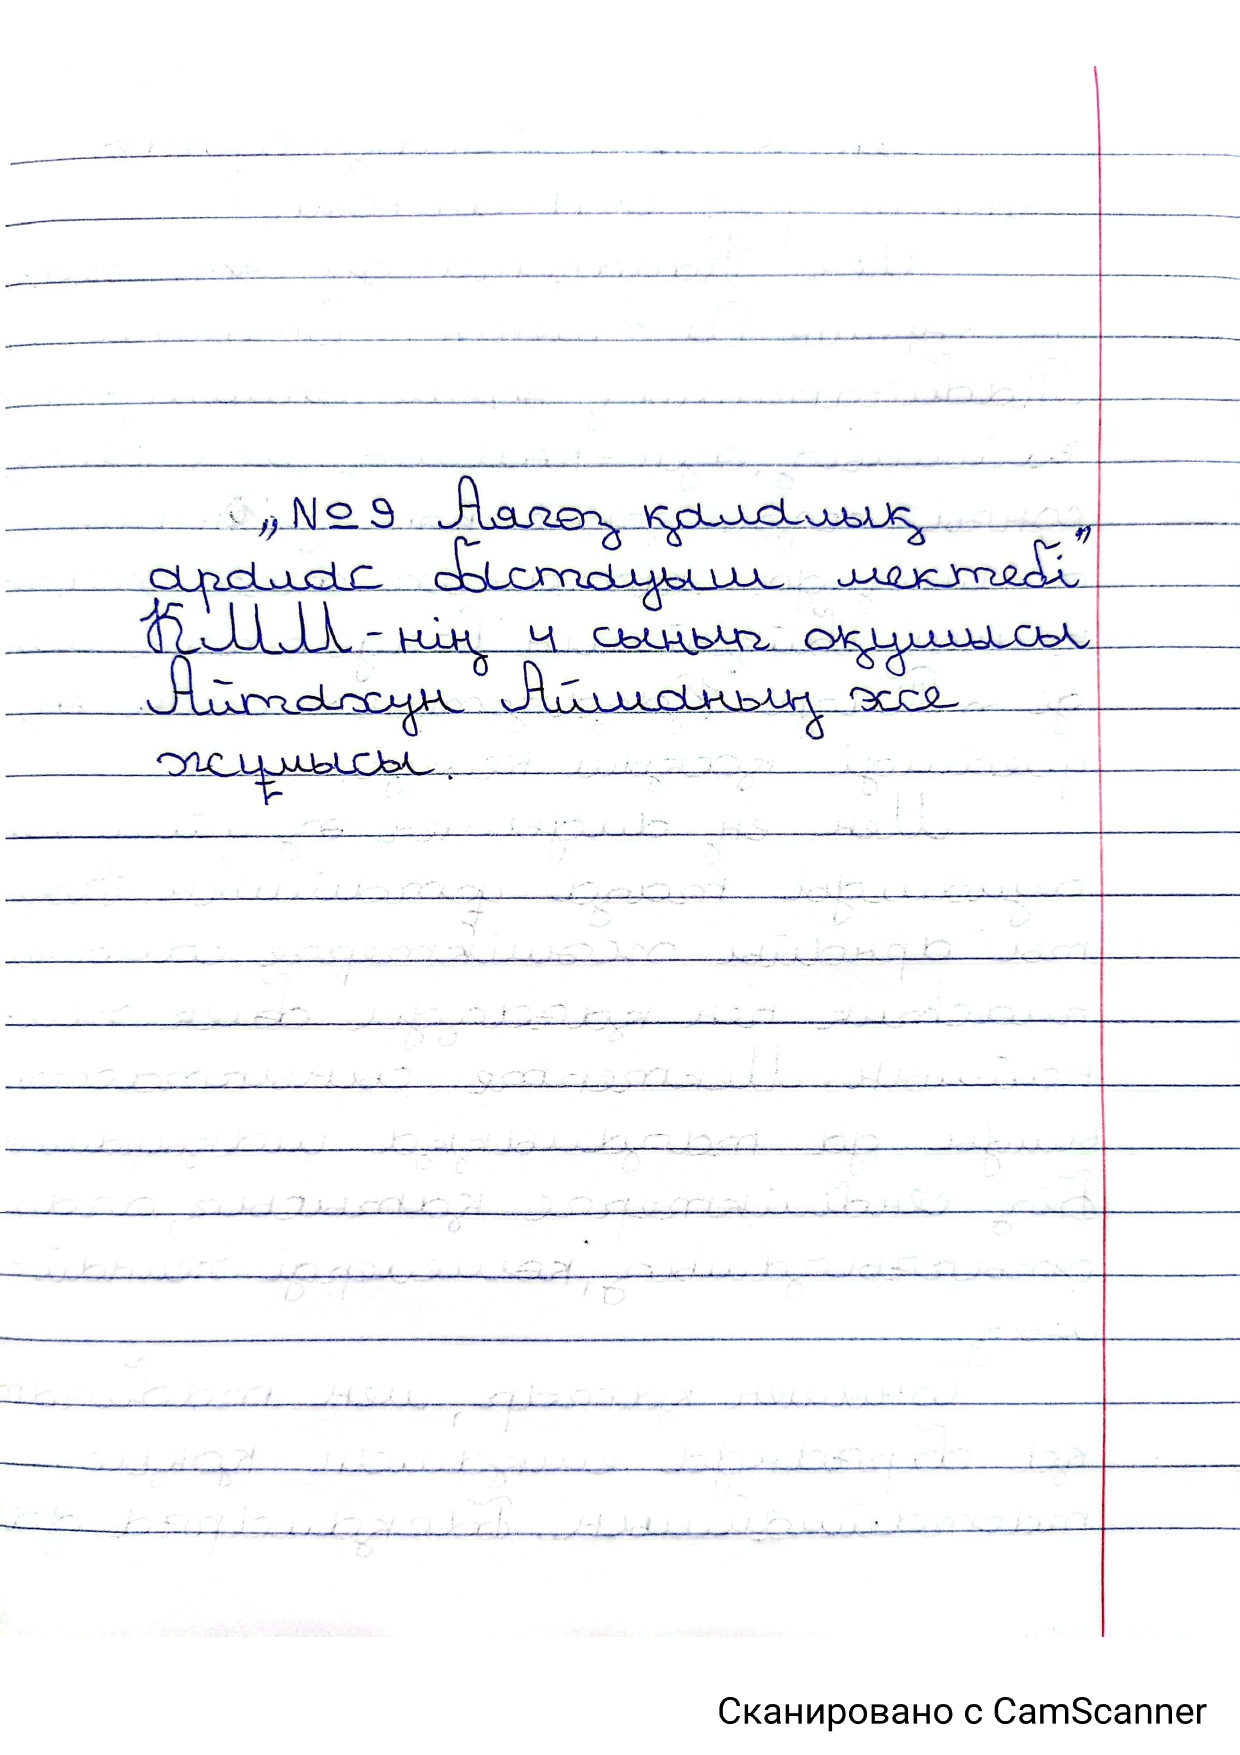 „№9 Аягөз қалалық
аралас бастауыш мектебі”
КММ-нің 4 сынып оқушысы
Айтажун Айлманың эссе
жұмысы.
Сканировано с CamScanner